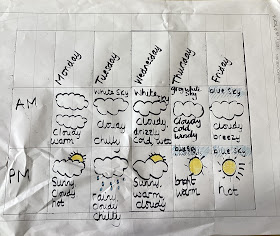 Monday
Tuesday
Wednesday
Thursday
Friday
AM
Cloudy
warm
White Sky
Cloudy
chilly
White Sky
Cloudy
drizzly
Cold, wet
grey white
Sky
Cloudy
cold,
windy
blue sky
Cloudy
breezy
PM
Sunny,
Cloudy
hot
rainy
cloudy
chilly
Sunny,
warm
cloudy
bright
warm
blue sky
hot